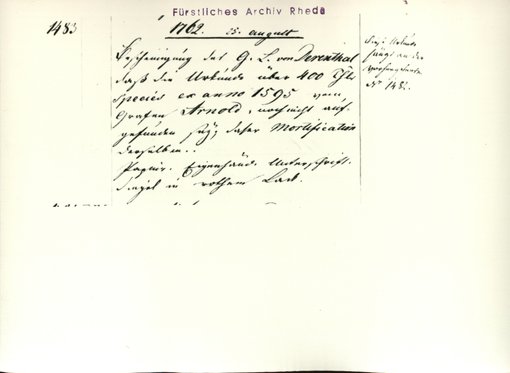 Fürstliches Archiv Rheda
1483
1762. 25. august
Bescheinigung des G. L. von Derenthal
daß die Urkunde über 400 Thlr
species ex anno 1595 vom
Grafen Arnold, noch nicht auf-
gefunden sey, daher Mortification
derselben.
Papier. Eigenhänd. Unterschrift.
Siegel in rothem Lack.
Diese Urkunde
hängt an der